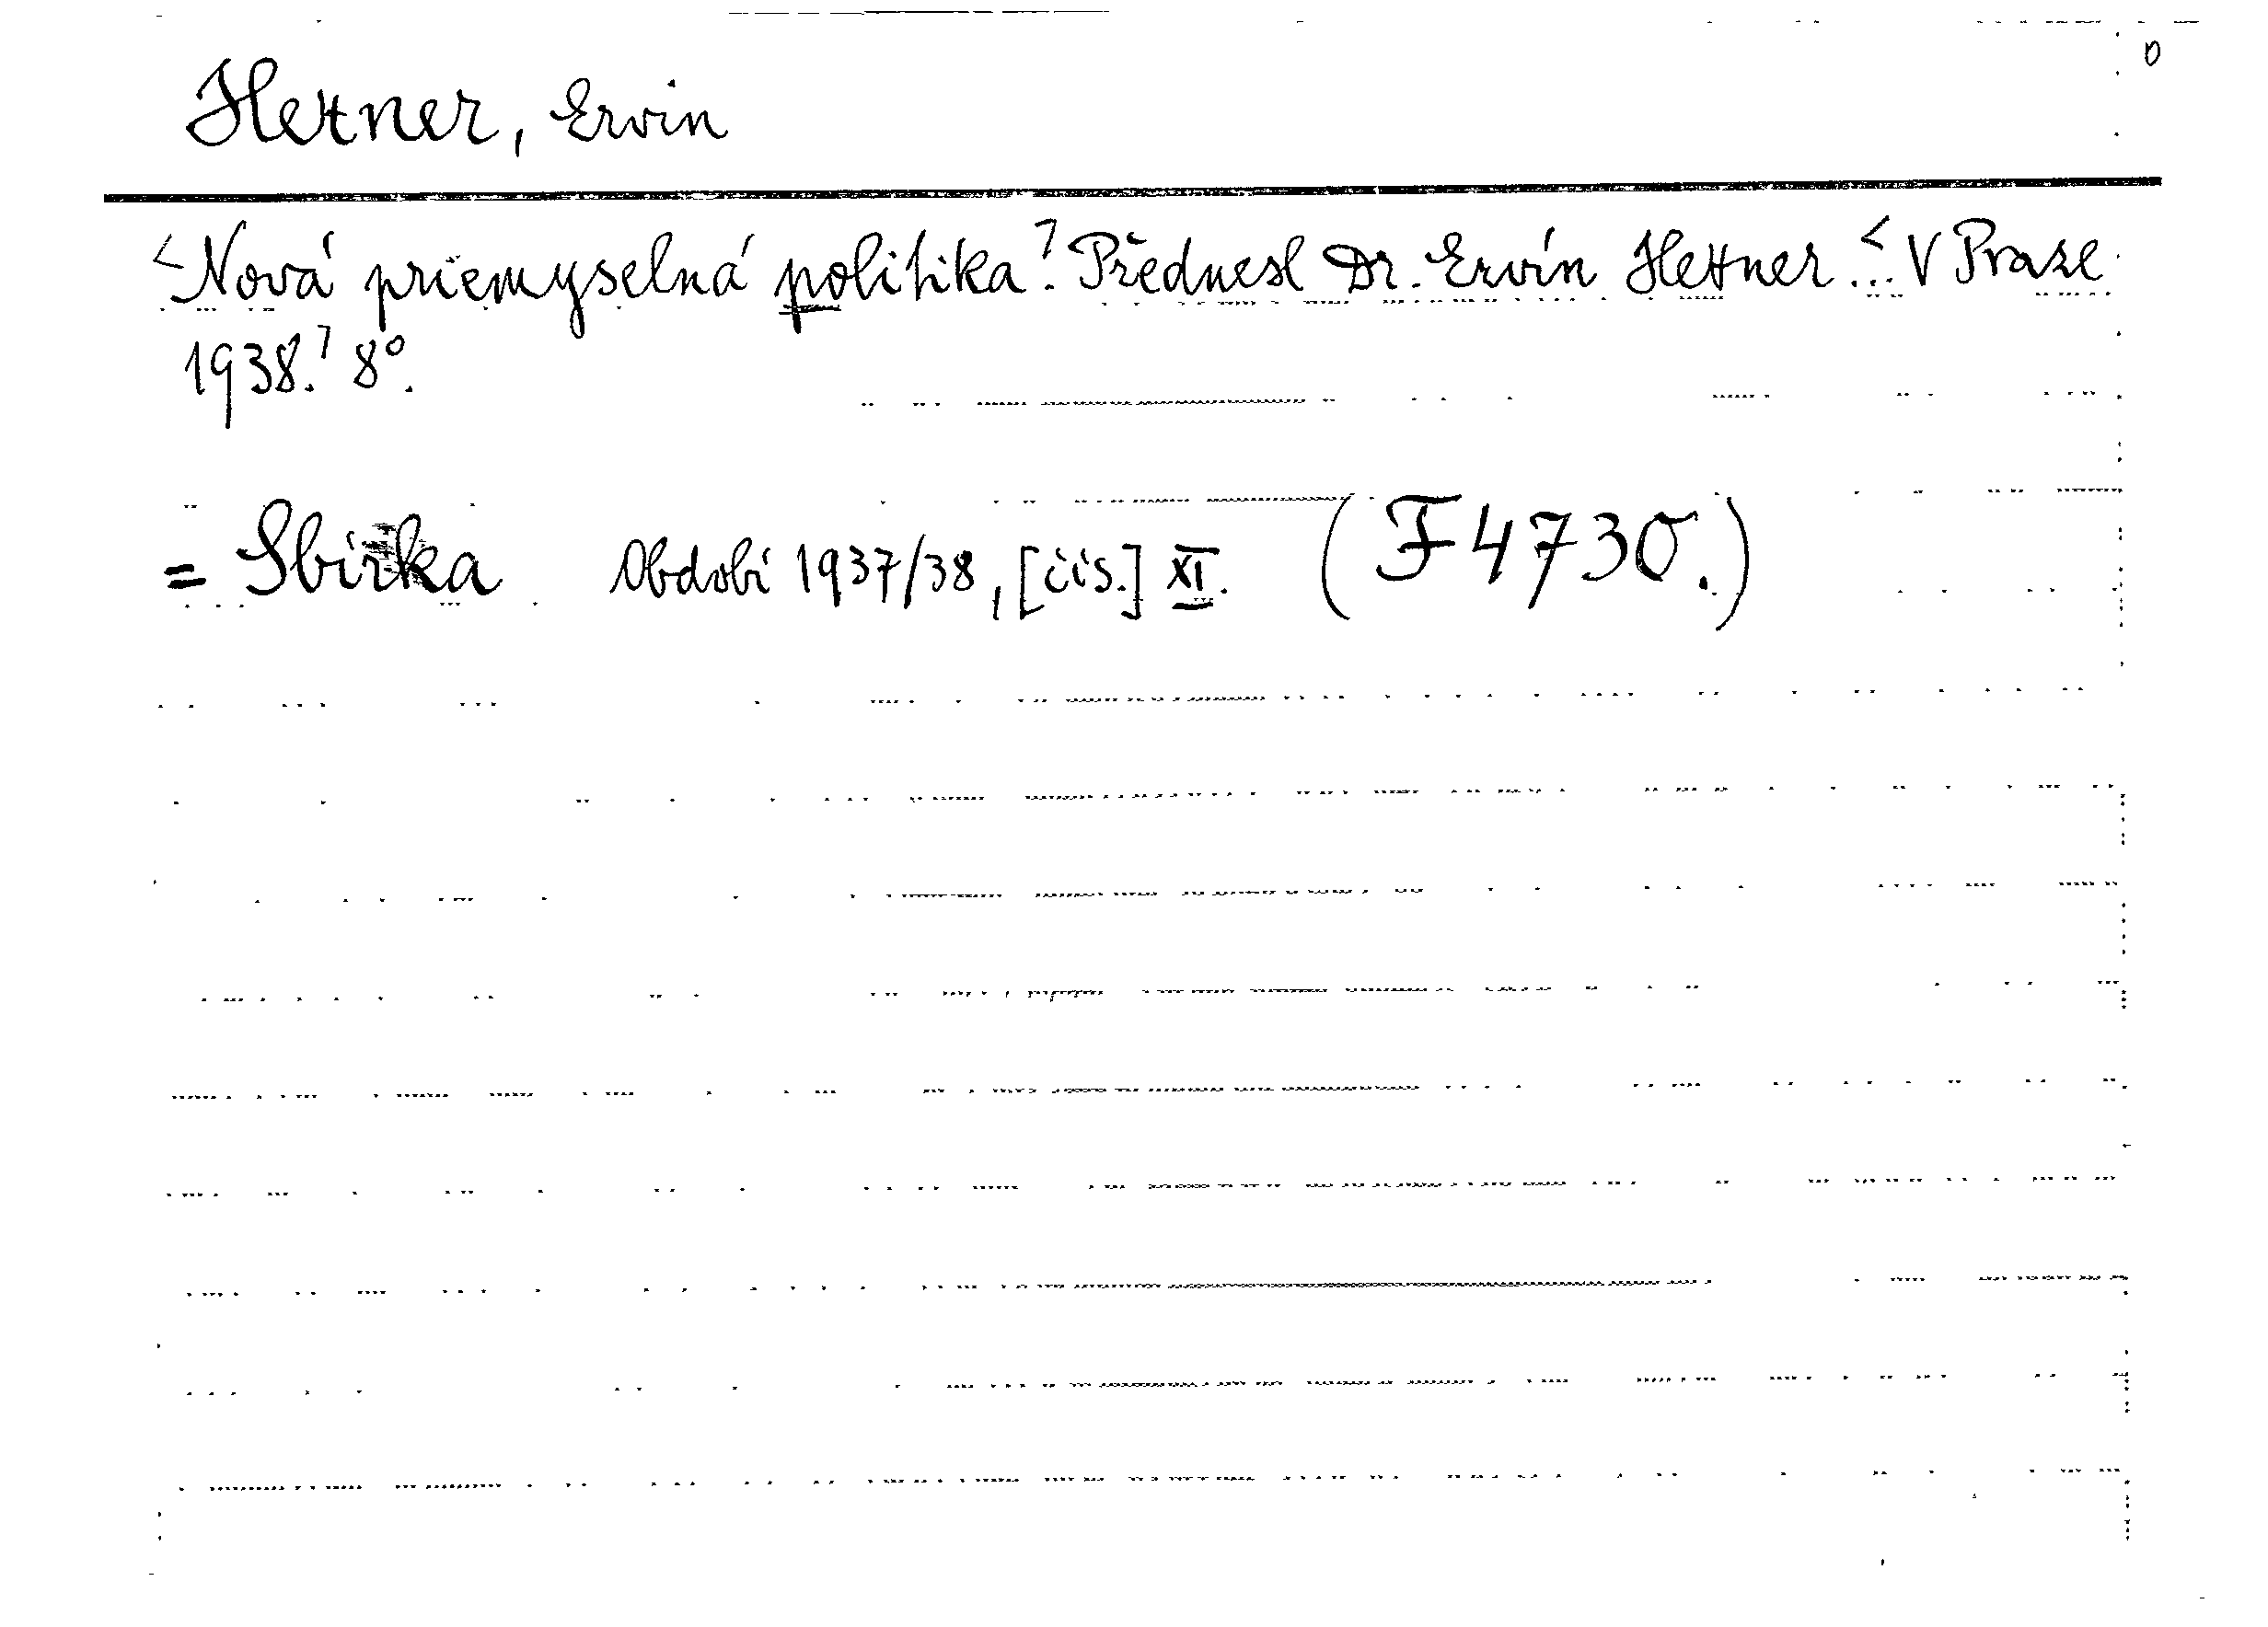 Hexner, Ervin
<Nová priemyselná politika.> Přednesl Dr. Ervín Hexner... <V Praze
1938.> 8°.
= Sbírka Období 1937/38, [čís.] XI. (F 4730.)